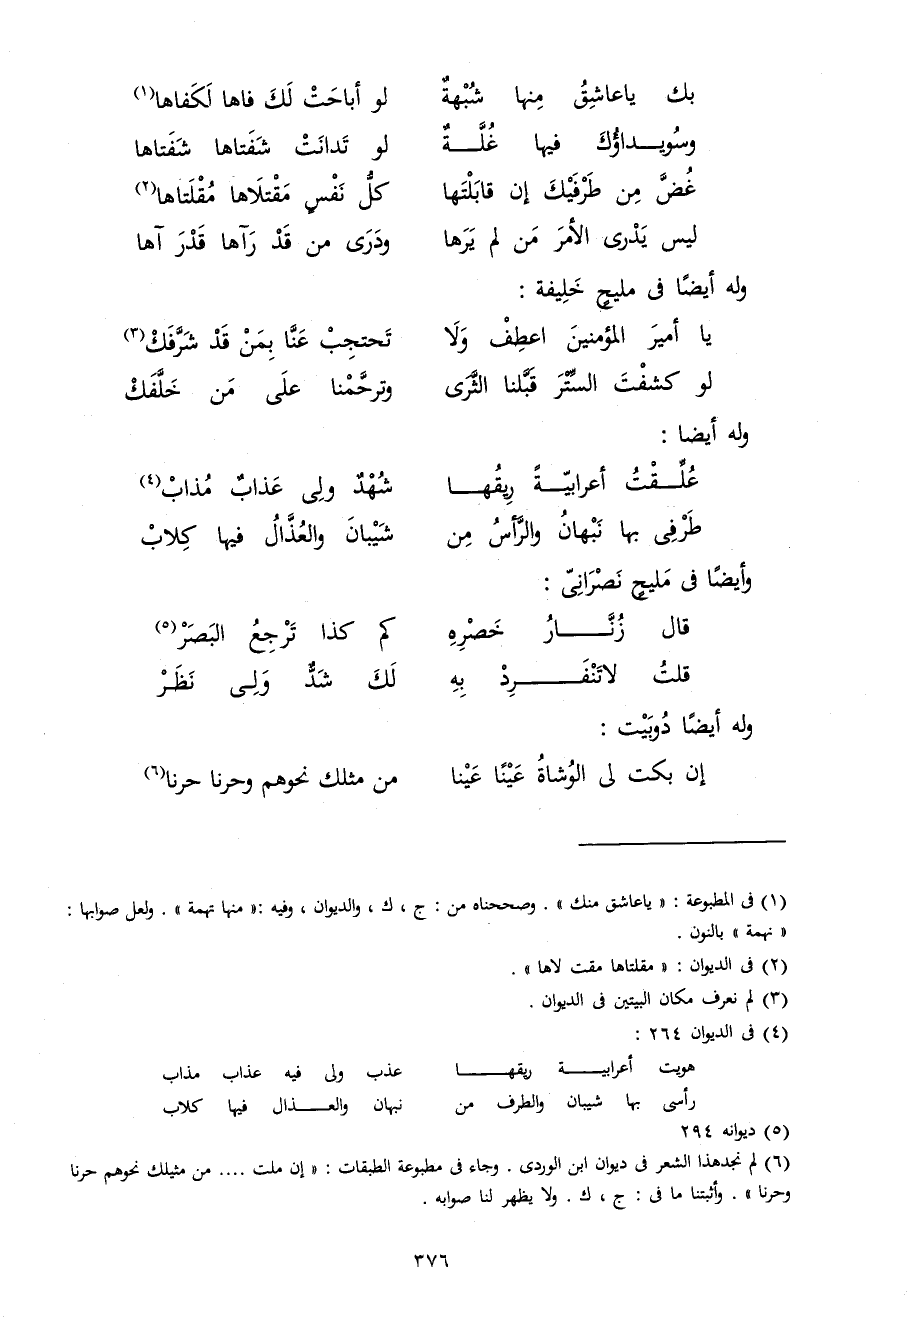 بك ياعاشِقُ مِنها شُبْهةٌ لو أباحَتْ لَكَ فاها لَكَفاها(١)
وسُويـداؤُكَ فيها غُلَّـةٌ لو تَدانَتْ شَفَتاها شفَتاها
غُضَّ مِن طَرْفَيْكَ إن قابَلْتَها كلُّ نَفْسٍ مَقْتلَاها مُقْلَتاها(٢)
ليس يَدْرى الأمرَ مَن لم يَرَها ودَرَى من قَدْ رَآها قَدْرَ آها
وله أيضًا فى مليحٍ خَلِيفة :
يا أميرَ المؤمنينَ اعطِفْ وَلَا تَحتجِبْ عَنَّا بِمَنْ قَدْ شَرَّفَكْ(٣)
لو كشفْتَ السِّتْرَ قَبَّلنا الثَّرَى وترحَّمْنا علَى مَن خَلَّفَكْ
وله أيضا :
عُلِّـقْتُ أعرابيّـةً رِيقُهـا شُهْدٌ ولِى عَذابٌ مُذابْ(٤)
طَرْفِى بها نَبْهانُ والرَّأسُ مِن شَيْبانَ والعُذَّالُ فيها كِلابْ
وأيضًا فى مَليحٍ نَصْرَانِىّ :
قال زُنَّـارُ خَصْرِهِ كم كذا تَرْجِعُ البَصَرْ(٥)
قلتُ لاتَنْفَـرِدْ بِهِ لَكَ شَدٌّ وَلِـى نَظَرْ
وله أيضًا دُوبَيْت :
إن بكت لى الوُشاةُ عَيْنًا عَيْنا من مثلك نحوهم وحرنا حرنا(٦)
(١) فى المطبوعة : « ياعاشق منك » . وصححناه من : ج ، ك ، والديوان ، وفيه :« منها تهمة » . ولعل صوابها :
« نهمة » بالنون .
(٢) فى الديوان : « مقلتاها مقت لاها » .
(٣) لم نعرف مكان البيتين فى الديوان .
(٤) فى الديوان ٢٦٤ :
هويت أعرابيـة ريقهـا عذب ولى فيه عذاب مذاب
رأسى بها شيبان والطرف من نبهان والعـذال فيها كلاب
(٥) ديوانه ٢٩٤
(٦) لم نجدهذا الشعر فى ديوان ابن الوردى . وجاء فى مطبوعة الطبقات : « إن ملت .... من مثيلك نحوهم حرنا
وحرنا » . وأثبتنا ما فى : ج ، ك . ولا يظهر لنا صوابه .
٣٧٦